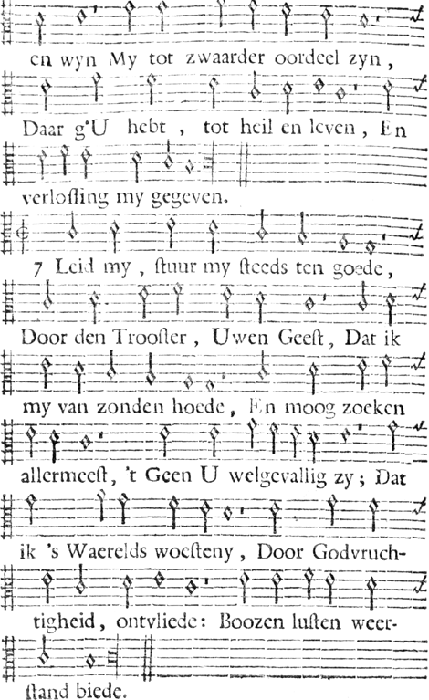 en wyn My tot zwaarder oordeel zyn,
Daar g'U hebt, tot heil en leven, En
verlossing my gegeven.
7 Leid my, stuur my steeds ten goede,
Door den Trooster, Uwen Geest, Dat ik
my van zonden hoede, En moog zoeken
allermeest, 't Geen U welgevallig zy; Dat
ik 's Waerelds woesteny, Door Godvruch-
tigheid, ontvliede: Boozen lusten weer-
stand biede.